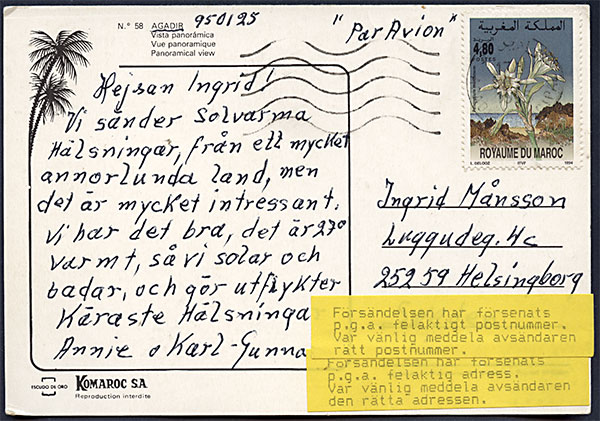 N.° 58 AGADIR
Vista panorámica
Vue panoramique
Panoramical view
950125
"Par Avion"
Hejsan Ingrid!
Vi sänder Solvarma
Hälsningar, från ett mycket
annorlunda land, men
det är mycket intressant.
Vi har det bra, det är 27°
varmt, så vi solar och
badar, och gör utflykter
Käraste Hälsningar
Annie o Karl-Gunna
ESCUDO DE ORO
KOMAROC S.A.
Reproduction interdite
المملكة المغربية
4,80
POSTES
ROYAUME DU MAROC
1994
Ingrid Månsson
Luggudeg. 4c
252 59 Helsingborg
Försändelsen har försenats
p.g.a. felaktigt postnummer.
Var vänlig meddela avsändaren
rätt postnummer.
Försändelsen har försenats
p.g.a. felaktig adress.
Var vänlig meddela avsändaren
den rätta adressen.